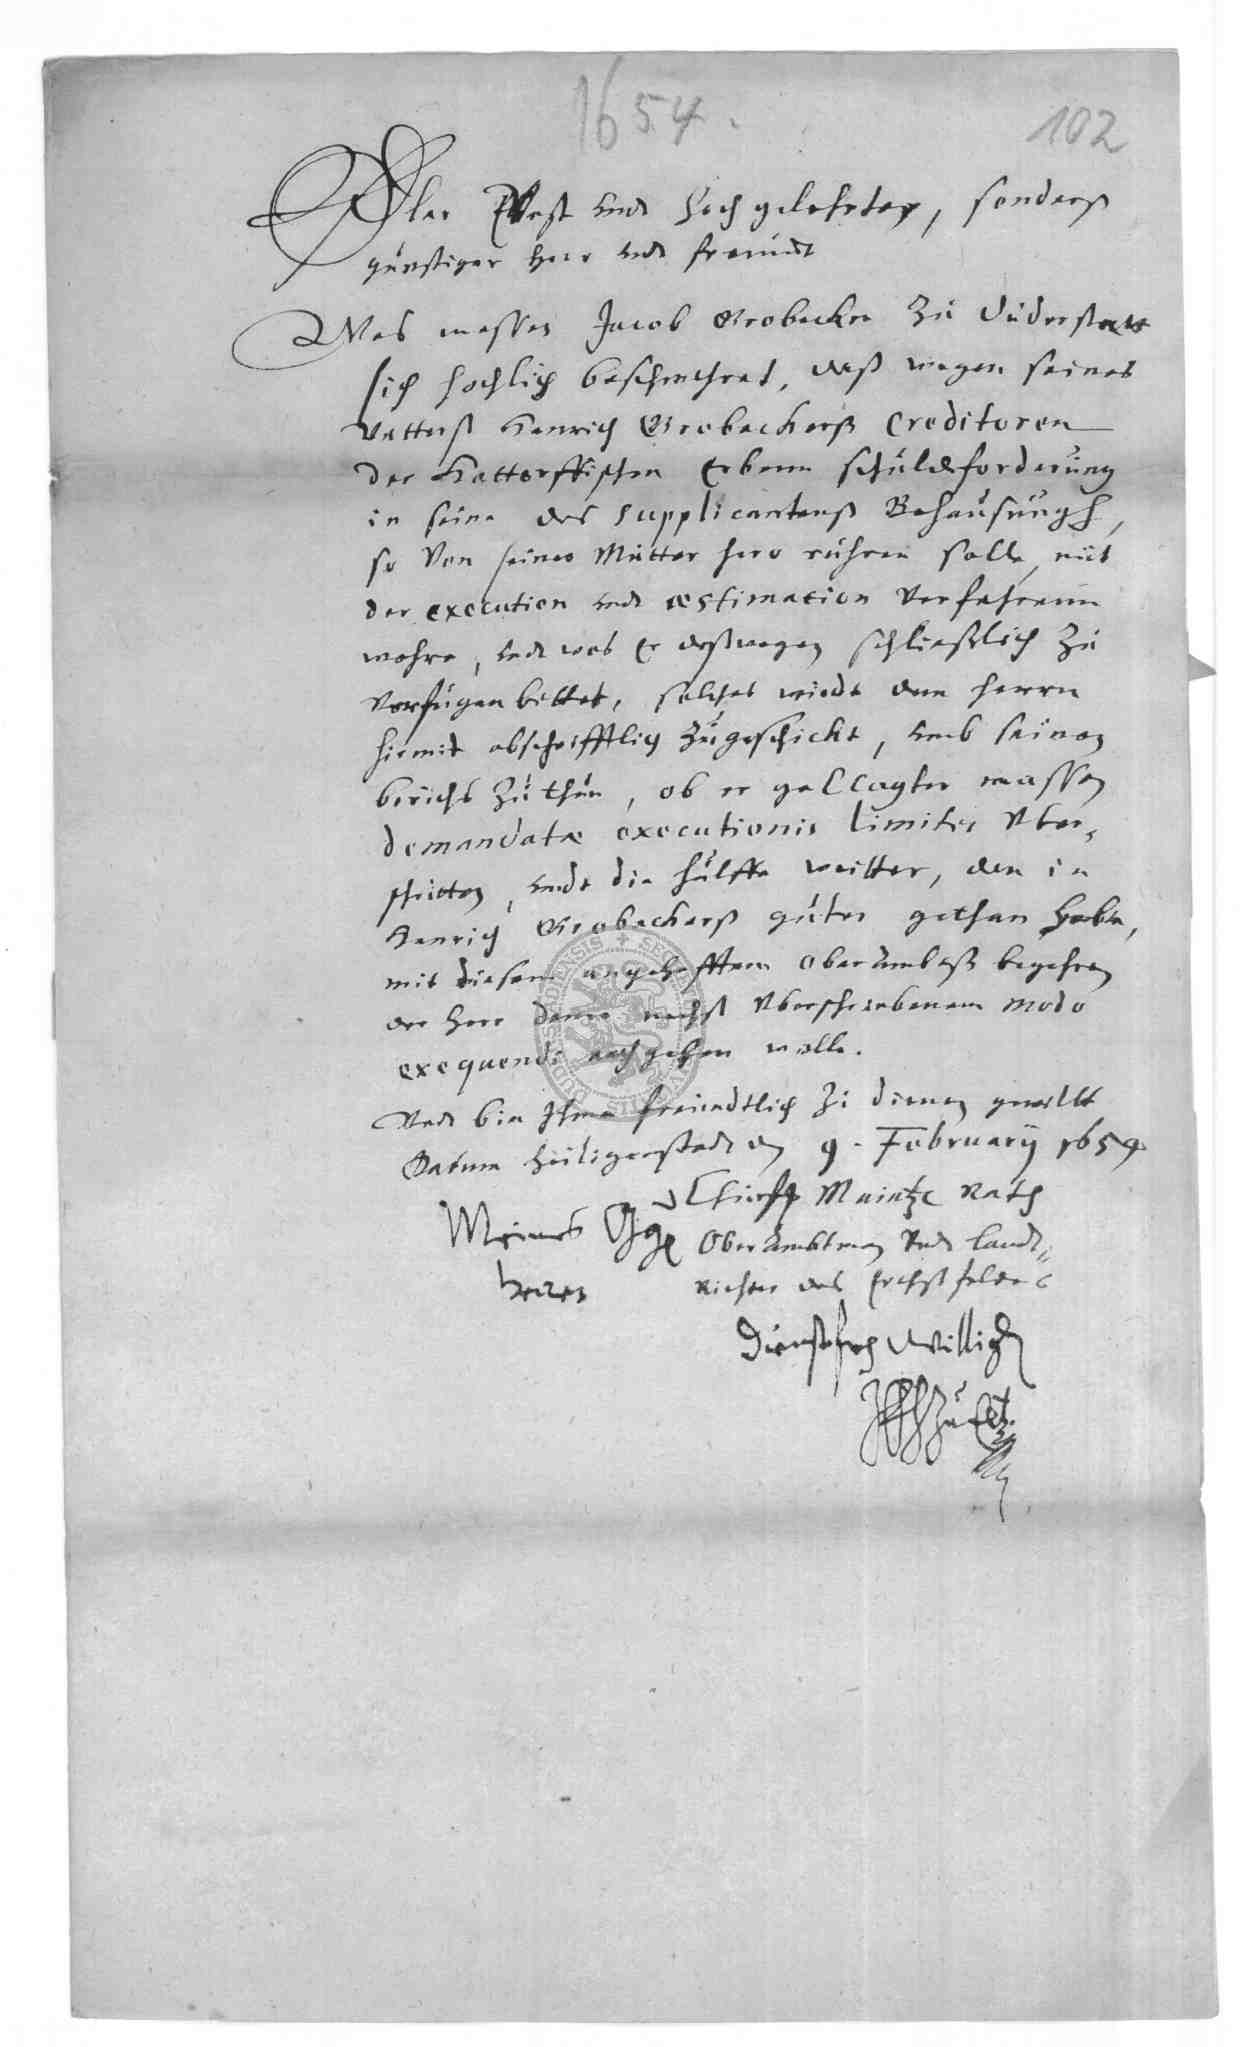 1654.
102
Edler Vest undt Hochgelehrter, sonderß
günstiger Herr undt freundt
Was massen Jacob Grobecker Zu Duderstatt
sich hochlich beschwehret, daß wegen seines
Vetterß Henrich Grobeckerß Creditoren
der Hattorffischen Erbenn schuldtforderung
in seine des Supplicantenß Behausungh,
so Von seiner Mutter hero rühren solle, mit
der execution undt æstimation Verfahrenn
wehre, undt was Er deßwegen schließlich Zu
Verfügen bittet, solches wirdt dem Herrn
hiemit abschrifftlich Zugeschickt, umb seinen
bericht Zu thun, ob er geklagter massen
demandatæ executionis limites Uber„
schritten, undt die hülffe weitter, den in
Henrich Grobeckerß güter gethan habe,
mit diesem angehefftem oberambtß begehren
der Herr deme nechst Uberschriebenem modo
exequendi nachgehen wolle.
Undt bin Ihme freundtlich Zu dienen gewillt
Datum Heiligenstadt den 9. February 1654
Churf Maintz Rath
Meines Ggl Oberambtman Undt Landt„
Herren Richter des Eichßfeldes
Dienstfreundtwilliger